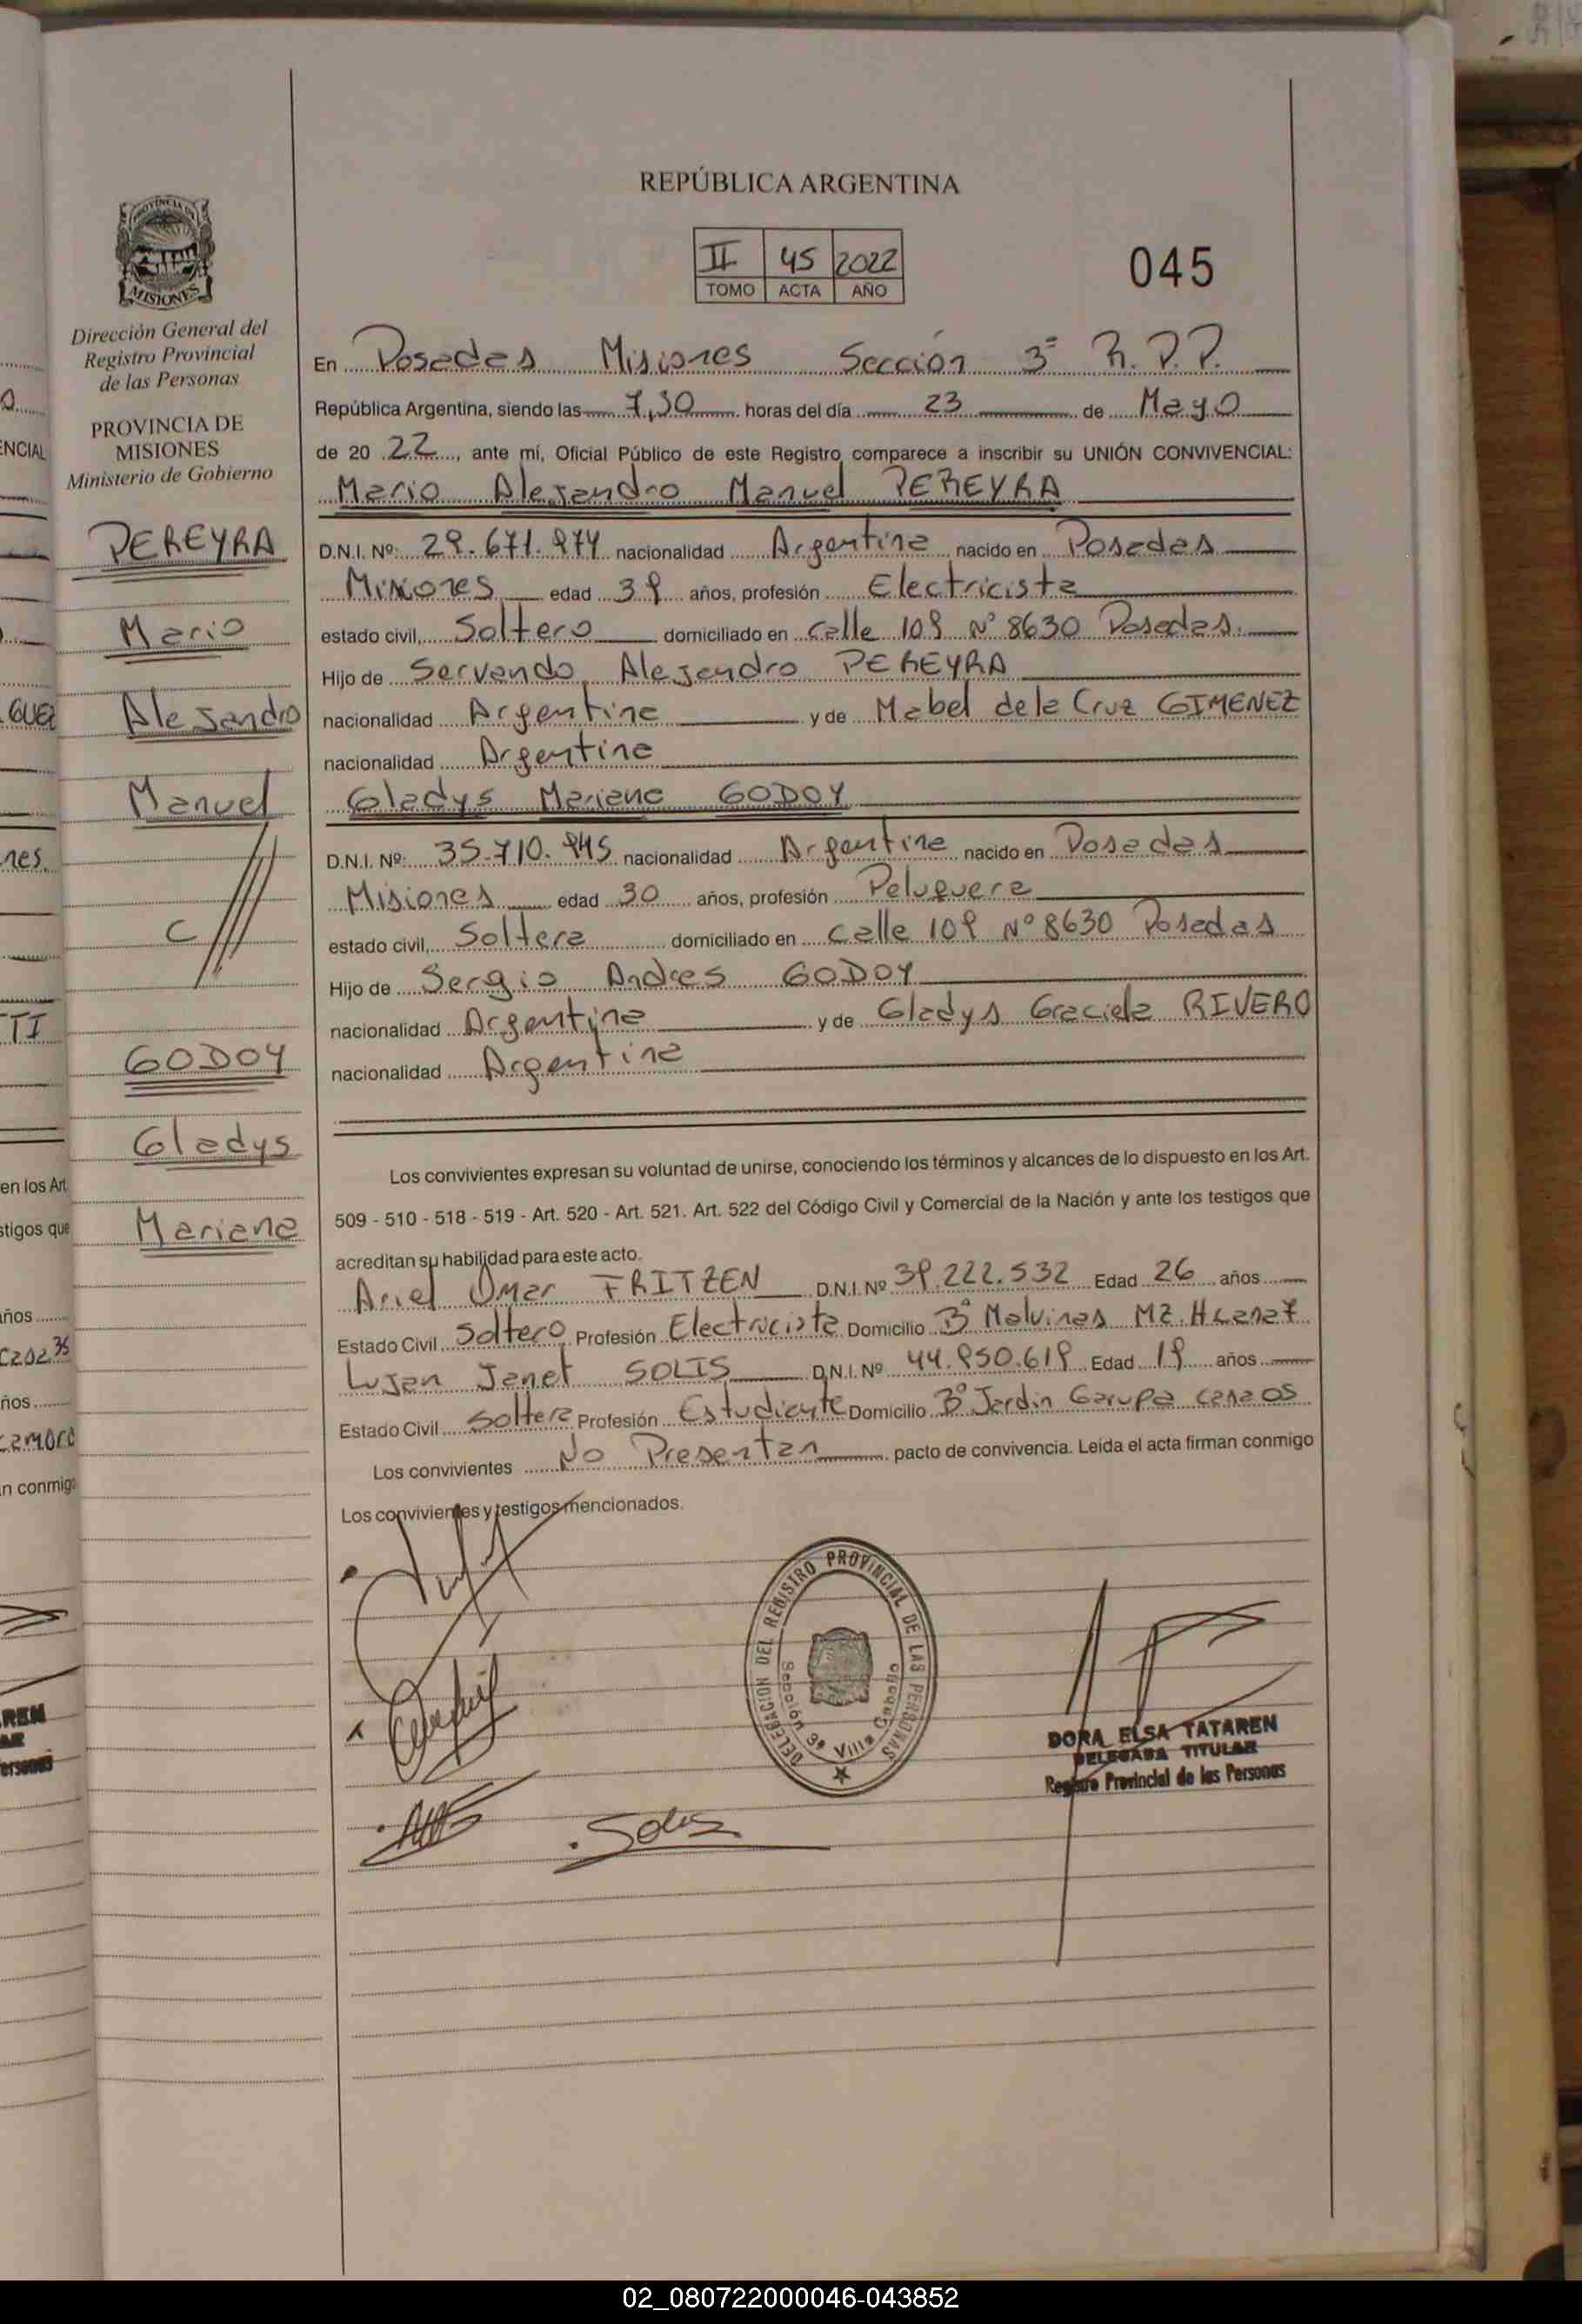 REPÚBLICA ARGENTINA
II 45 2022
TOMO ACTA AÑO
045
PROVINCIA DE
MISIONES
Dirección General del
Registro Provincial
de las Personas
PROVINCIA DE
MISIONES
Ministerio de Gobierno
PEREYRA
Mario
Alejandro
Manuel
C
GODOY
Gladys
Mariana
En Posadas Misiones Sección 3ª R.P.P.
República Argentina, siendo las 7,30 horas del día 23 de Mayo
de 20 22, ante mí, Oficial Público de este Registro comparece a inscribir su UNIÓN CONVIVENCIAL:
Mario Alejandro Manuel PEREYRA
D.N.I. Nº: 29.671.974 nacionalidad Argentina nacido en Posadas
Misiones edad 39 años, profesión Electricista
estado civil, Soltero domiciliado en calle 109 Nº 8630 Posadas.
Hijo de Servando Alejandro PEREYRA
nacionalidad Argentina y de Mabel de la Cruz GIMENEZ
nacionalidad Argentina
Gladys Mariana GODOY
D.N.I. Nº: 35.710.945 nacionalidad Argentina nacido en Posadas
Misiones edad 30 años, profesión Peluquera
estado civil, Soltera domiciliado en calle 109 Nº 8630 Posadas
Hijo de Sergio Andres GODOY
nacionalidad Argentina y de Gladys Graciela RIVERO
nacionalidad Argentina
Los convivientes expresan su voluntad de unirse, conociendo los términos y alcances de lo dispuesto en los Art.
509 - 510 - 518 - 519 - Art. 520 - Art. 521. Art. 522 del Código Civil y Comercial de la Nación y ante los testigos que
acreditan su habilidad para este acto.
Ariel Omar FRITZEN D.N.I. Nº 39.222.532 Edad 26 años
Estado Civil Soltero Profesión Electricista Domicilio Bº Malvinas MZ. H casa 7
Lujan Janet SOLIS D.N.I. Nº 44.950.619 Edad 19 años
Estado Civil Soltera Profesión Estudiante Domicilio Bº Jardin Garupa casa 05
Los convivientes No Presentan pacto de convivencia. Leída el acta firman conmigo
Los convivientes y testigos mencionados.
DELEGACION DEL REGISTRO PROVINCIAL DE LAS PERSONAS
Sección 3ª Villa Cabello
Solis
DORA ELSA TATAREN
DELEGADA TITULAR
Registro Provincial de las Personas
02_080722000046-043852